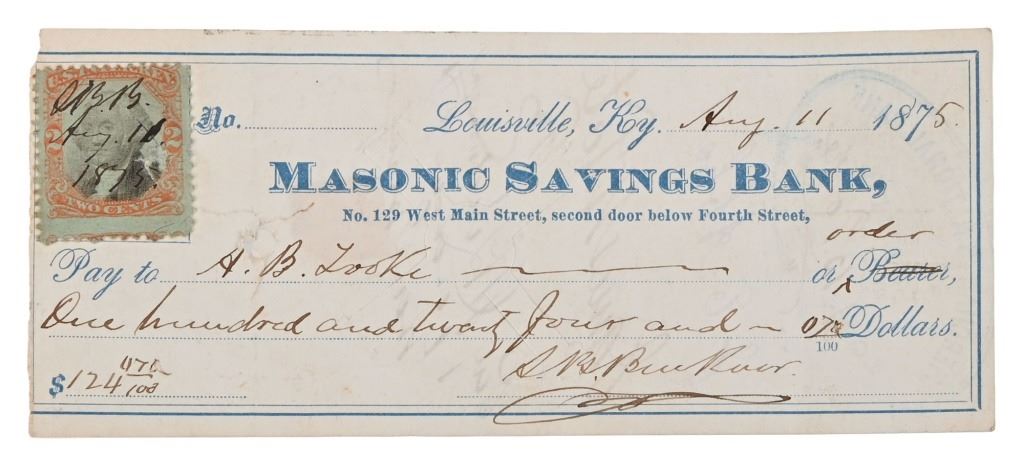 U.S. INTER. REV.
S.B.B.
Aug. 11.
1875.
2 2
TWO CENTS
No. Louisville, Ky. Aug. 11 1875.
MASONIC SAVINGS BANK,
No. 129 West Main Street, second door below Fourth Street,
order
Pay to A. B. Tooke or ^ Bearer,
One hundred and twenty four and 07/100 Dollars.
$124 07/100
S. B. Buckner